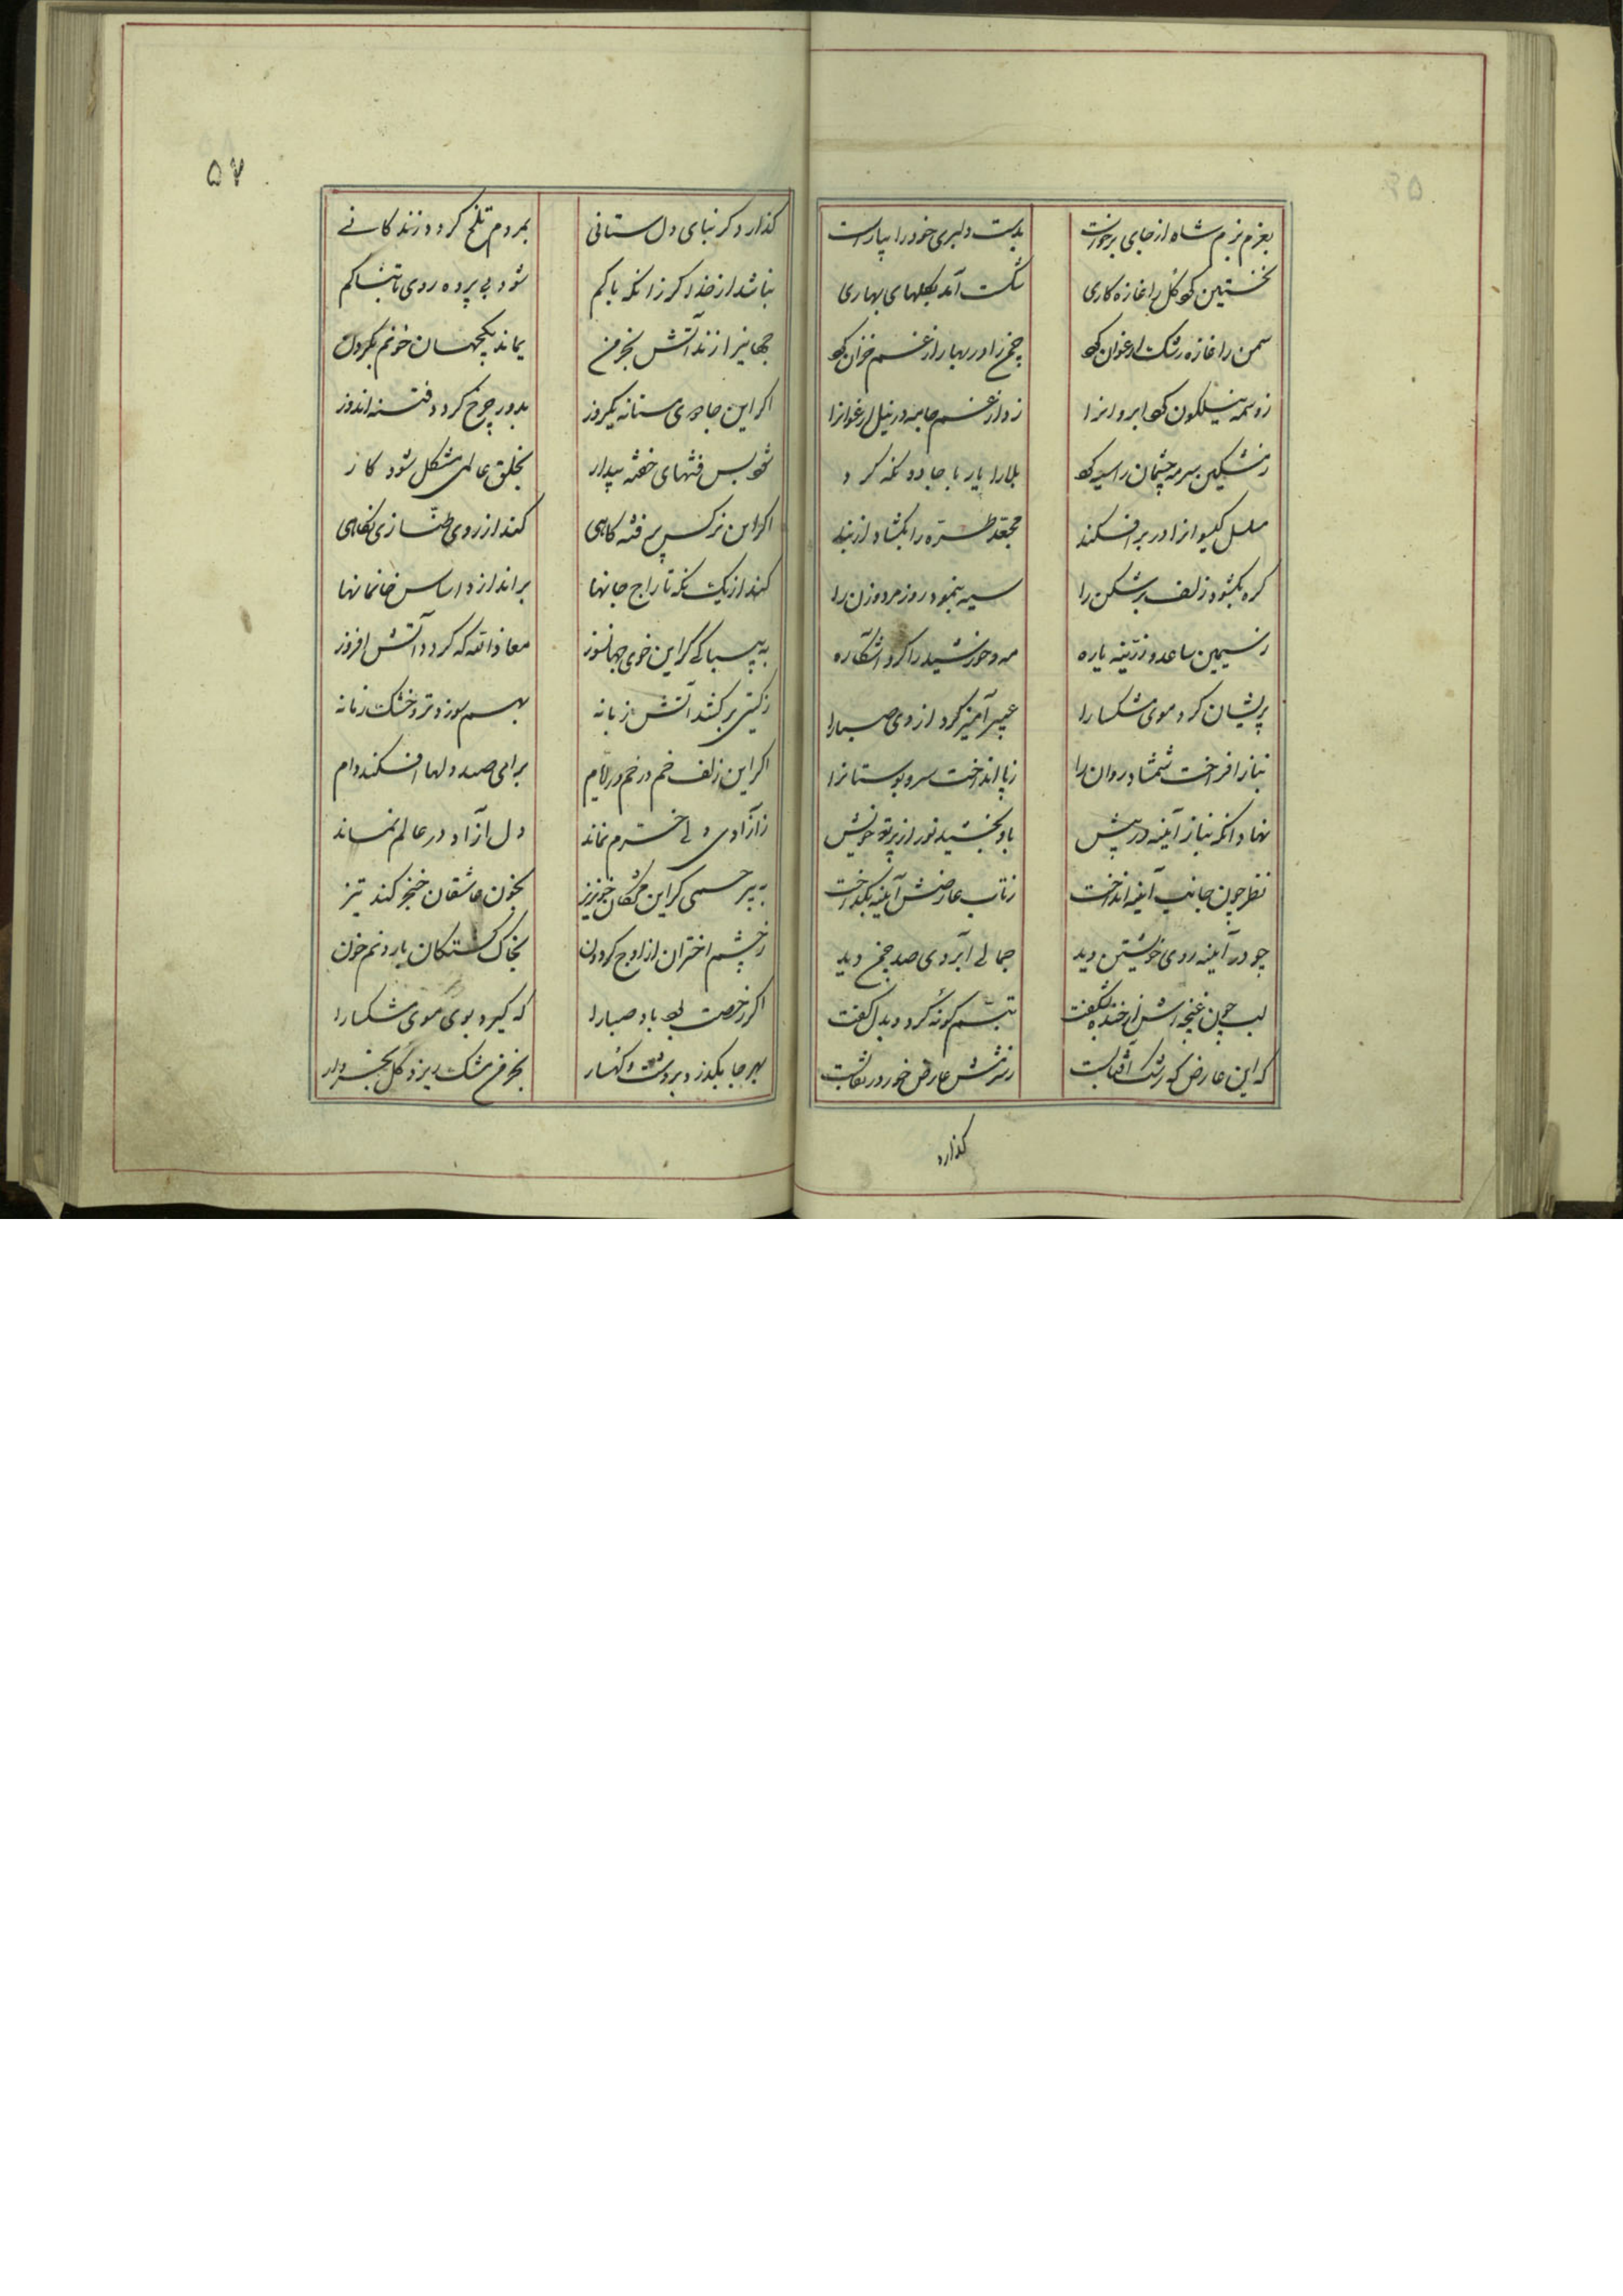 بعزم بزم شاه از جای برخواست بدست دلبری خود را بیاراست
نخستین کرد گل را غازه کاری شکست آمد بگلهای بهاری
سمن را غازه رشک ارغوان کرد چمن را در بهار از غم خزان کرد
ز وسمه نیلگون کرد ابروانرا زد از غم جامه در نیل ارغوانرا
ز مشکین سرمه چشمان را سیه کرد بلا را یار با جادو نگه کرد
مسلسل گیسوانرا در بر افکند مجعد طره را بگشاد از بند
گره بگشود زلف پرشکن را سیه بنمود روز مرد و زن را
ز سیمین ساعد و زرینه یاره مه و خورشید را کرد آشکاره
پریشان کرد موی مشکسا را عبیرآمیز کرد از وی صبا را
بناز افراخت شمشاد روان را ز پا انداخت سرو بوستانرا
نهاد آنگه بناز آینه در پیش باو بخشید نور از پرتو خویش
نظر چون جانب آینه انداخت ز تاب عارضش آیینه بگداخت
چو در آیینه روی خویشتن دید جمالی آبروی صد چمن دید
لب چون غنچه‌اش از خنده بشگفت تبسم گونهٔ کرد و بدل گفت
که این عارض که رشک آفتابست ز شرمش عارض خور در نقابست
گذارد
۵۷
گذارد گر بنای دل ستانی بمردم تلخ گردد زندگانی
نباشد از خدا گر زانکه باکم شود بی پرده روی تابناکم
جهانیرا زند آتش بخرمن بماند یکجهان خونم بگردن
اگر این جادوی مستانه یکروز بدور چرخ گردد فتنه اندوز
شود بس فتنهای خفته بیدار بخلق عالمی مشکل شود کار
اگر این نرگس پر فتنه گاهی کند از روی طنازی نگاهی
کند از یک نگه تاراج جانها براندازد اساس خانمانها
به بیباکی گر این خوی جهانسوز معاذالله که گردد آتش افروز
ز گیتی برکشد آتش زبانه بهم سوزد تر و خشک زمانه
اگر این زلف خم در خم درآیم برای صید دلها افکند دام
ز آزادی دلی خرم نماند دل آزاد در عالم نماند
به بیرحمی گر این مژگان خونریز بخون عاشقان خنجر کند تیز
ز چشم اختران از اوج گردون بخاک کشتگان بارد نم خون
اگر رخصت بود باد صبا را که گیرد بوی موی مشکسا را
بهر جا بگذرد بر دشت و کهسار بخرمن مشک ریزد گل بخروار